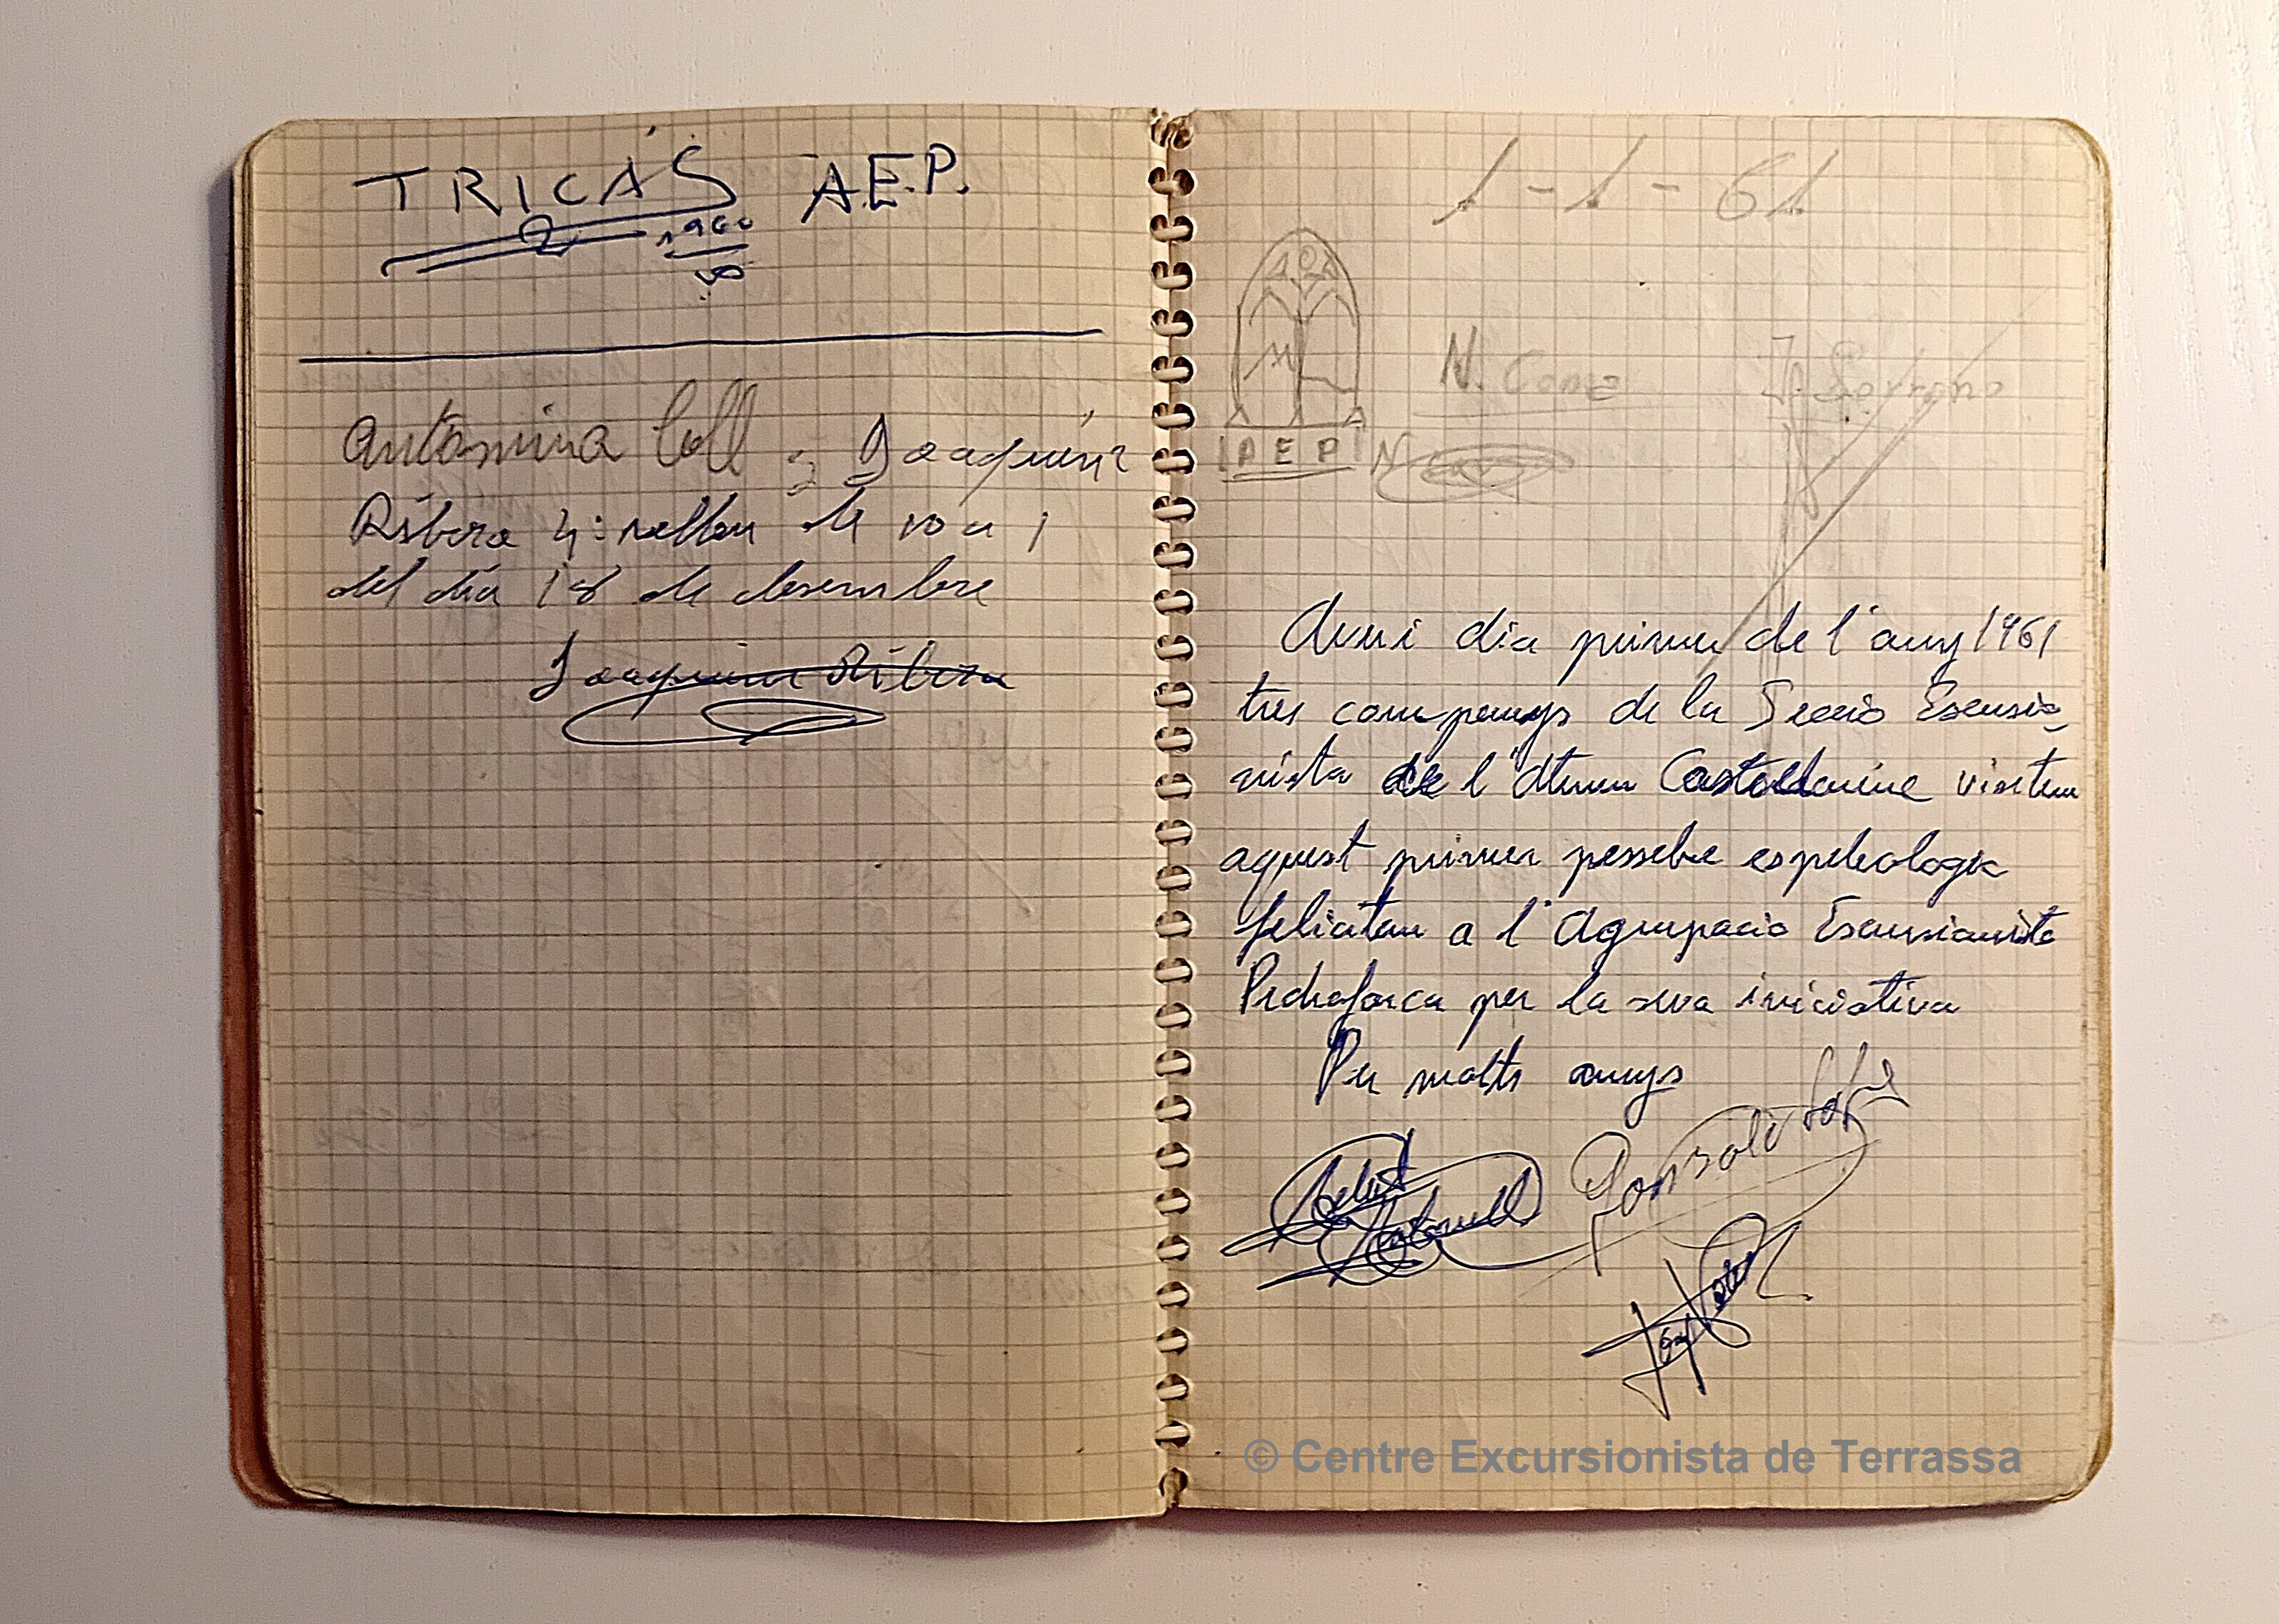 TRICÁS A.E.P.
1960
Antonina Coll y Joaquin
Ribera de 10 a 1
del día 18 de desembre
Joaquin Ribera
1-1-61
N. Coma J. Serrano
AEP
Avui dia primer de l'any 1961
tres companys de la Secció Escursio
nista de l'Ateneu Castelldanine visitem
aquest primer pessebre espeleologic
felicitem a l'Agrupacio Escursionista
Pedraforca per la seva iniciativa
Per molts anys
© Centre Excursionista de Terrassa